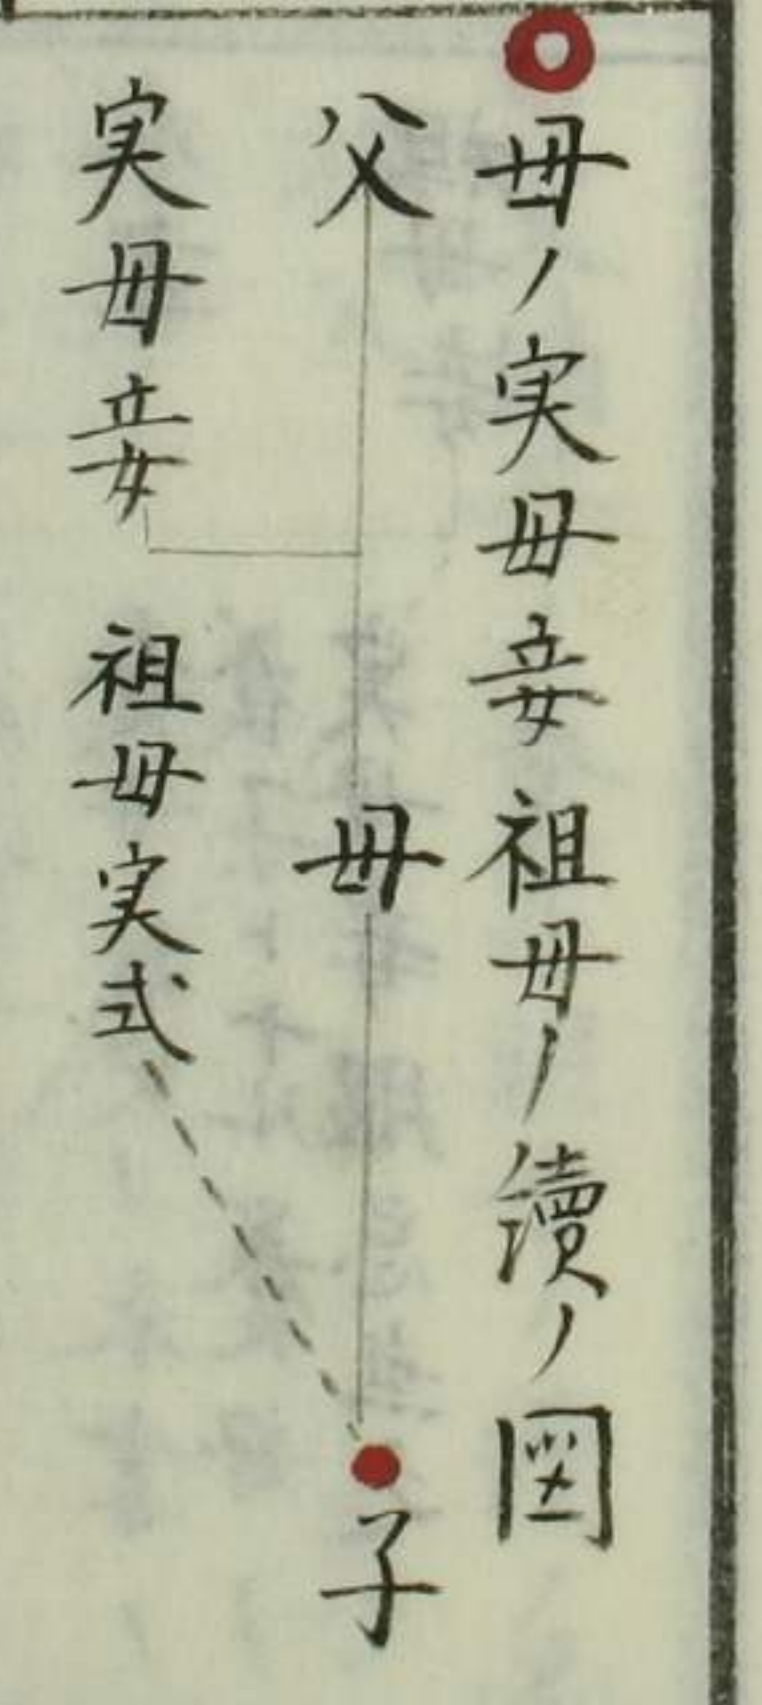 母ノ実母妾祖母ノ續ノ図
父 母 子
実母妾 祖母実式